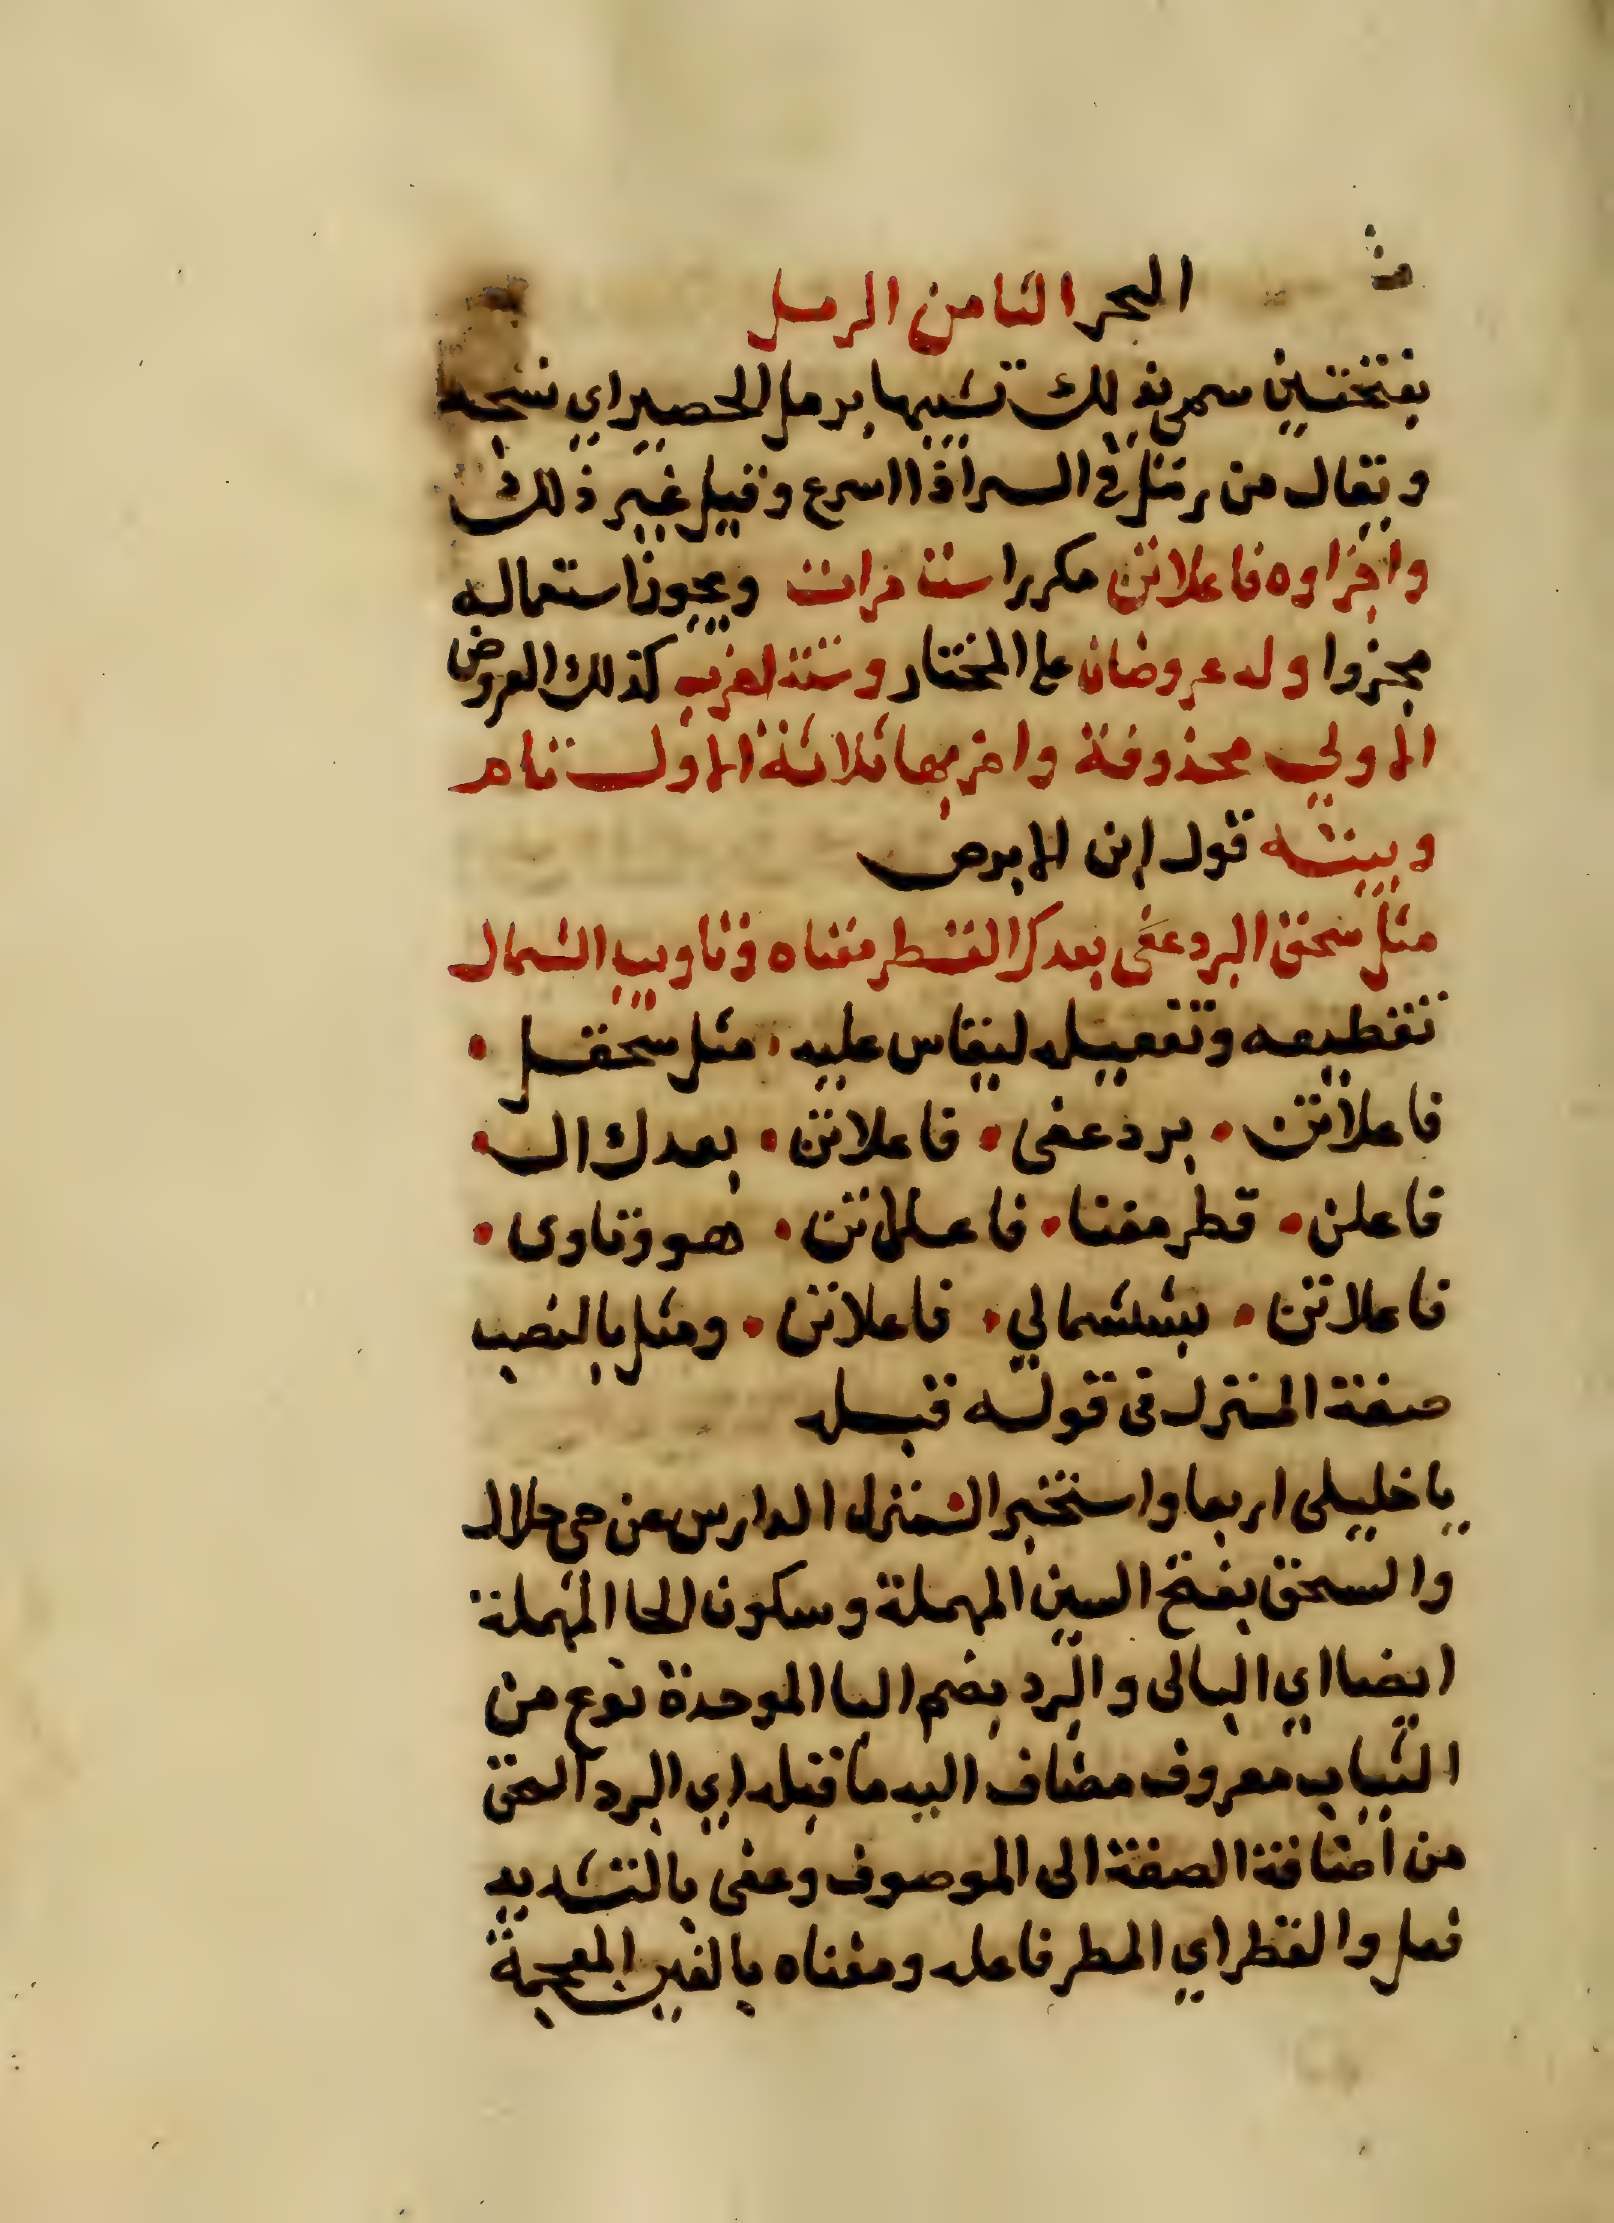 البحر الثامن الرمل
بفتحتين سمي بذلك تشبيها برمل الحصير اي نسجه
ويقال من رمل في السراذا اسرع وقيل غير ذلك
واجزاوه فاعلاتن مكررا ست مرات ويجوز استعماله
مجزوا وله عروضان على المختار وستة اضرب كذلك العروض
الاولي محذوفة واضربها ثلاثة الاول تام
وبيته قول ابن الابرص
مثل سحق البرد عفى بعدك القطر مغناه وتاويب الشمال
تقطيعه وتفعيله ليقاس عليه مثل سحقل •
فاعلاتن • برد عفى • فاعلاتن • بعدك ال •
فاعلن • قطر مغنا • فاعلاتن • هو وتاوى •
فاعلاتن • بششمالي • فاعلاتن • ومثل بالنصب
صفة المنزل فى قوله قبله
يا خليلى اربعا واستخبرا ال • منزل الدارس عن حي حلال
والسحق بفتح السين المهملة وسكون الحا المهملة
ايضا اي البالى والبرد بضم البا الموحدة نوع من
الثياب معروف مضاف اليه ما قبله اي البرد السحق
من اضافة الصفة الى الموصوف وعفى بالتشديد
فعل والقطر اي المطر فاعله ومغناه بالغين المعجمة